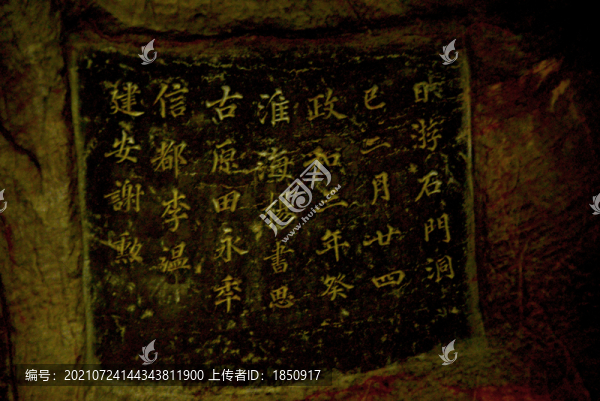 建安謝勲
信都李温
古原田永年
淮海楊書思
政和三年癸
巳二月廿四
日游石門洞
汇图网
www.huitu.com
编号：20210724144343811900 上传者ID：1850917